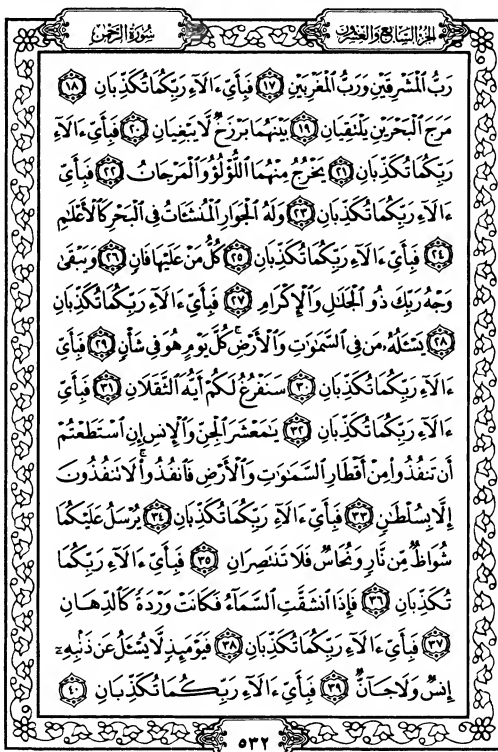 الجزء السابع والعشرون
سورة الرحمن
رَبُّ ٱلْمَشْرِقَيْنِ وَرَبُّ ٱلْمَغْرِبَيْنِ ١٧ فَبِأَيِّ ءَالَآءِ رَبِّكُمَا تُكَذِّبَانِ ١٨
مَرَجَ ٱلْبَحْرَيْنِ يَلْتَقِيَانِ ١٩ بَيْنَهُمَا بَرْزَخٌ لَّا يَبْغِيَانِ ٢٠ فَبِأَيِّ ءَالَآءِ
رَبِّكُمَا تُكَذِّبَانِ ٢١ يَخْرُجُ مِنْهُمَا ٱللُّؤْلُؤُ وَٱلْمَرْجَانُ ٢٢ فَبِأَيِّ
ءَالَآءِ رَبِّكُمَا تُكَذِّبَانِ ٢٣ وَلَهُ ٱلْجَوَارِ ٱلْمُنشَـَٔاتُ فِى ٱلْبَحْرِ كَٱلْأَعْلَٰمِ
٢٤ فَبِأَيِّ ءَالَآءِ رَبِّكُمَا تُكَذِّبَانِ ٢٥ كُلُّ مَنْ عَلَيْهَا فَانٍ ٢٦ وَيَبْقَىٰ
وَجْهُ رَبِّكَ ذُو ٱلْجَلَٰلِ وَٱلْإِكْرَامِ ٢٧ فَبِأَيِّ ءَالَآءِ رَبِّكُمَا تُكَذِّبَانِ
٢٨ يَسْـَٔلُهُۥ مَن فِى ٱلسَّمَٰوَٰتِ وَٱلْأَرْضِ ۚ كُلَّ يَوْمٍ هُوَ فِى شَأْنٍ ٢٩ فَبِأَيِّ
ءَالَآءِ رَبِّكُمَا تُكَذِّبَانِ ٣٠ سَنَفْرُغُ لَكُمْ أَيُّهَ ٱلثَّقَلَانِ ٣١ فَبِأَيِّ
ءَالَآءِ رَبِّكُمَا تُكَذِّبَانِ ٣٢ يَٰمَعْشَرَ ٱلْجِنِّ وَٱلْإِنسِ إِنِ ٱسْتَطَعْتُمْ
أَن تَنفُذُوا۟ مِنْ أَقْطَارِ ٱلسَّمَٰوَٰتِ وَٱلْأَرْضِ فَٱنفُذُوا۟ ۚ لَا تَنفُذُونَ
إِلَّا بِسُلْطَٰنٍ ٣٣ فَبِأَيِّ ءَالَآءِ رَبِّكُمَا تُكَذِّبَانِ ٣٤ يُرْسَلُ عَلَيْكُمَا
شُوَاظٌ مِّن نَّارٍ وَنُحَاسٌ فَلَا تَنتَصِرَانِ ٣٥ فَبِأَيِّ ءَالَآءِ رَبِّكُمَا
تُكَذِّبَانِ ٣٦ فَإِذَا ٱنشَقَّتِ ٱلسَّمَآءُ فَكَانَتْ وَرْدَةً كَٱلدِّهَانِ
٣٧ فَبِأَيِّ ءَالَآءِ رَبِّكُمَا تُكَذِّبَانِ ٣٨ فَيَوْمَئِذٍ لَّا يُسْـَٔلُ عَن ذَنۢبِهِۦٓ
إِنسٌ وَلَا جَآنٌّ ٣٩ فَبِأَيِّ ءَالَآءِ رَبِّكُمَا تُكَذِّبَانِ ٤٠
٥٣٢